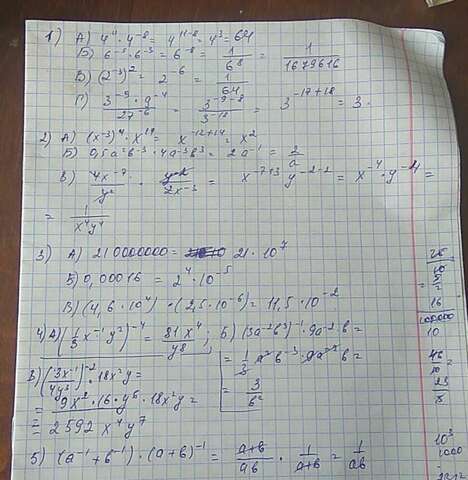 1) А) 4¹¹ · 4⁻⁸ = 4¹¹⁻⁸ = 4³ = 64
Б) 6⁻⁵ · 6⁻³ = 6⁻⁸ = 1/6⁸ = 1/1679616
В) (2⁻³)² = 2⁻⁶ = 1/64
Г) 3⁻⁹ · 9⁻⁴ / 27⁻⁶ = 3⁻⁹⁻⁸ / 3⁻¹⁸ = 3⁻¹⁷⁺¹⁸ = 3.
2) А) (x⁻³)⁴ · x¹⁴ = x⁻¹²⁺¹⁴ = x²
Б) 0,5a²b⁻³ · 4a⁻³b³ = 2a⁻¹ = 2/a
В) 4x⁻⁷/y² · y⁻²/2x⁻³ = x⁻⁷⁺³ y⁻²⁻² = x⁻⁴ · y⁻⁴ =
= 1/x⁴y⁴
3) А) 210000000 = 21 · 10⁷
Б) 0,00016 = 2⁴ · 10⁻⁵
В) (4,6 · 10⁴) · (2,5 · 10⁻⁶) = 11,5 · 10⁻²
4) А) (1/3 x⁻¹ y²)⁻⁴ = 81x⁴/y⁸; Б) (3a⁻²b³)⁻¹ · 9a⁻²b =
= 1/3 a²b⁻³ · 9a⁻²b =
= 3/b²
В) (3x⁻¹/4y³)⁻² · 18x²y =
= 9x² · 16 · y⁶ · 18x²y =
= 2592 x⁴y⁷
5) (a⁻¹ + b⁻¹) · (a+b)⁻¹ = a+b/ab · 1/a+b = 1/ab
25/10
= 5/2
16
100000
10
46/10 =
23/5
10³
1000